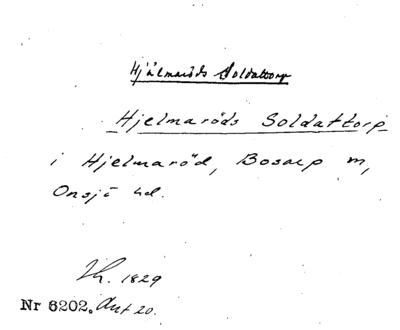 Hjälmaröds Soldattorp
Hjelmaröds Soldattorp
i Hjelmaröd, Bosarp m,
Onsjö hd.
1829
Nr 6202. Ant 20.